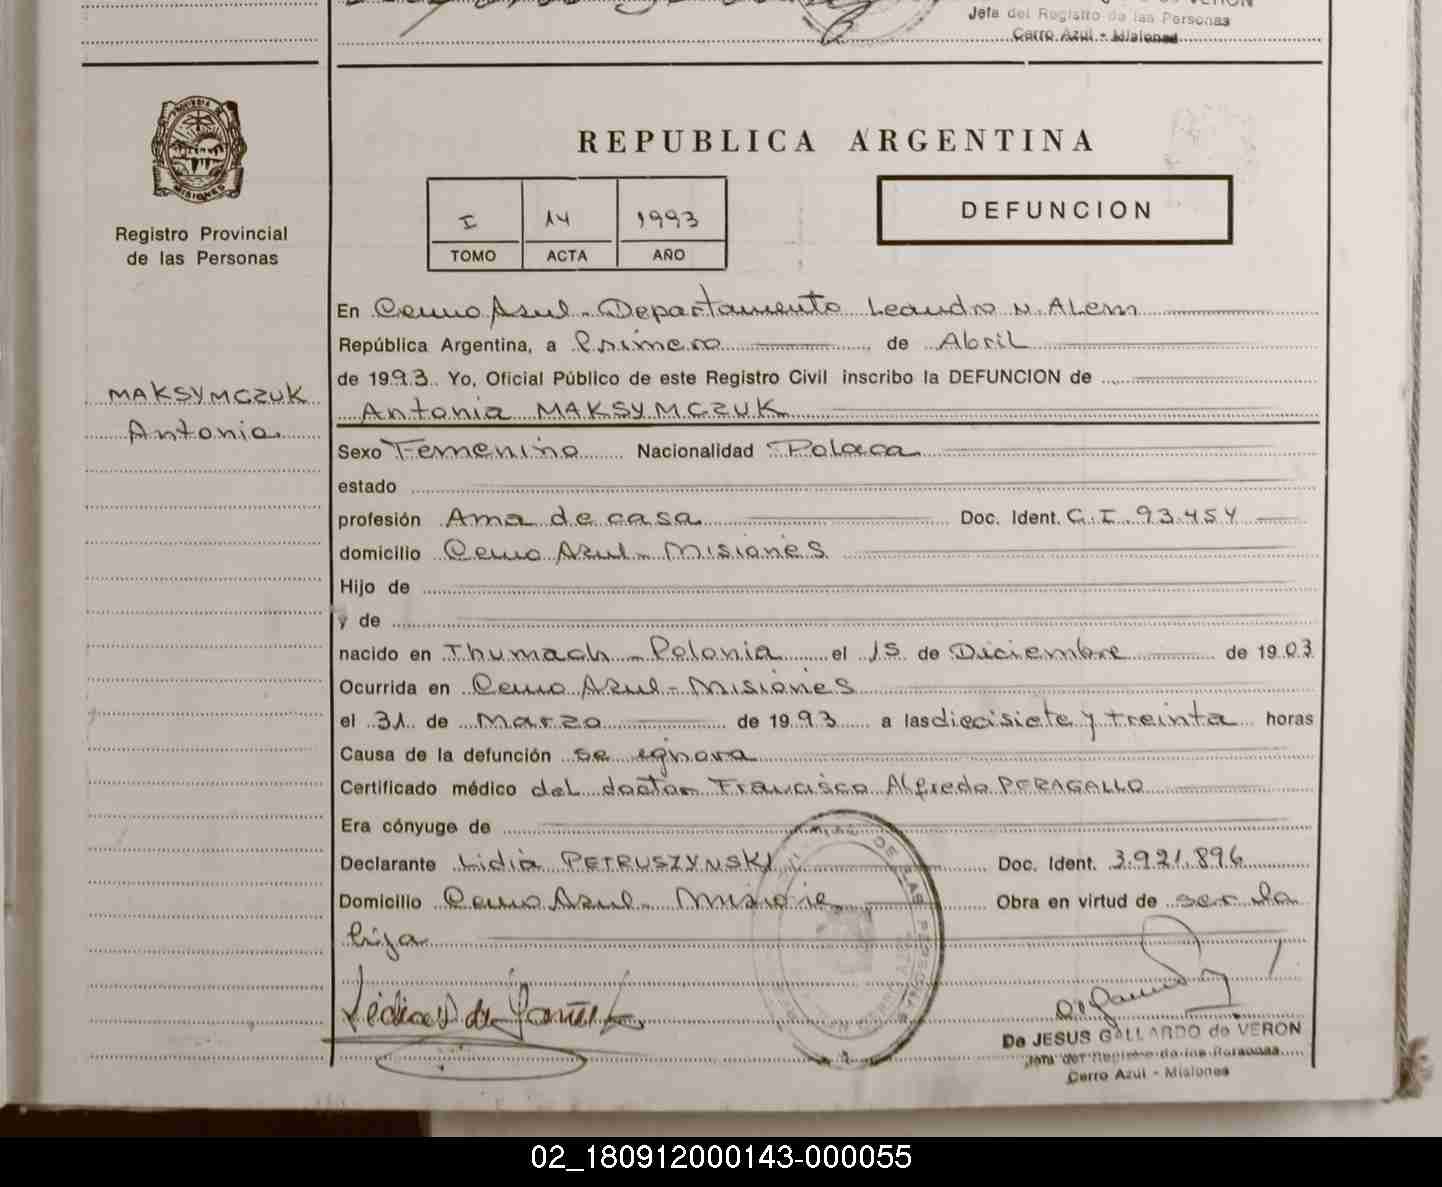 Jefe del Registro de las Personas
Cerro Azul - Misiones
PROVINCIA DE
MISIONES
Registro Provincial
de las Personas
MAKSYMCZUK
Antonia
REPUBLICA ARGENTINA
I 14 1993
TOMO ACTA AÑO
DEFUNCION
En Cerro Azul - Departamento Leandro N. Alem
República Argentina, a Primero de Abril
de 1993. Yo, Oficial Público de este Registro Civil inscribo la DEFUNCION de
Antonia MAKSYMCZUK
Sexo Femenino Nacionalidad Polaca
estado
profesión Ama de casa Doc. Ident. C.I. 93.454
domicilio Cerro Azul - Misiones
Hijo de
y de
nacido en Thumach - Polonia el 15 de Diciembre de 1903
Ocurrida en Cerro Azul - Misiones
el 31 de Marzo de 1993 a las diecisiete y treinta horas
Causa de la defunción se ignora
Certificado médico del doctor Francisco Alfredo PERAGALLO
Era cónyuge de
Declarante Lidia PETRUSZYNSKI Doc. Ident. 3.921.896
Domicilio Cerro Azul - Misiones Obra en virtud de ser la
hija
De JESUS GALLARDO de VERON
Jefa del Registro de las Personas
Cerro Azul - Misiones
02_180912000143-000055